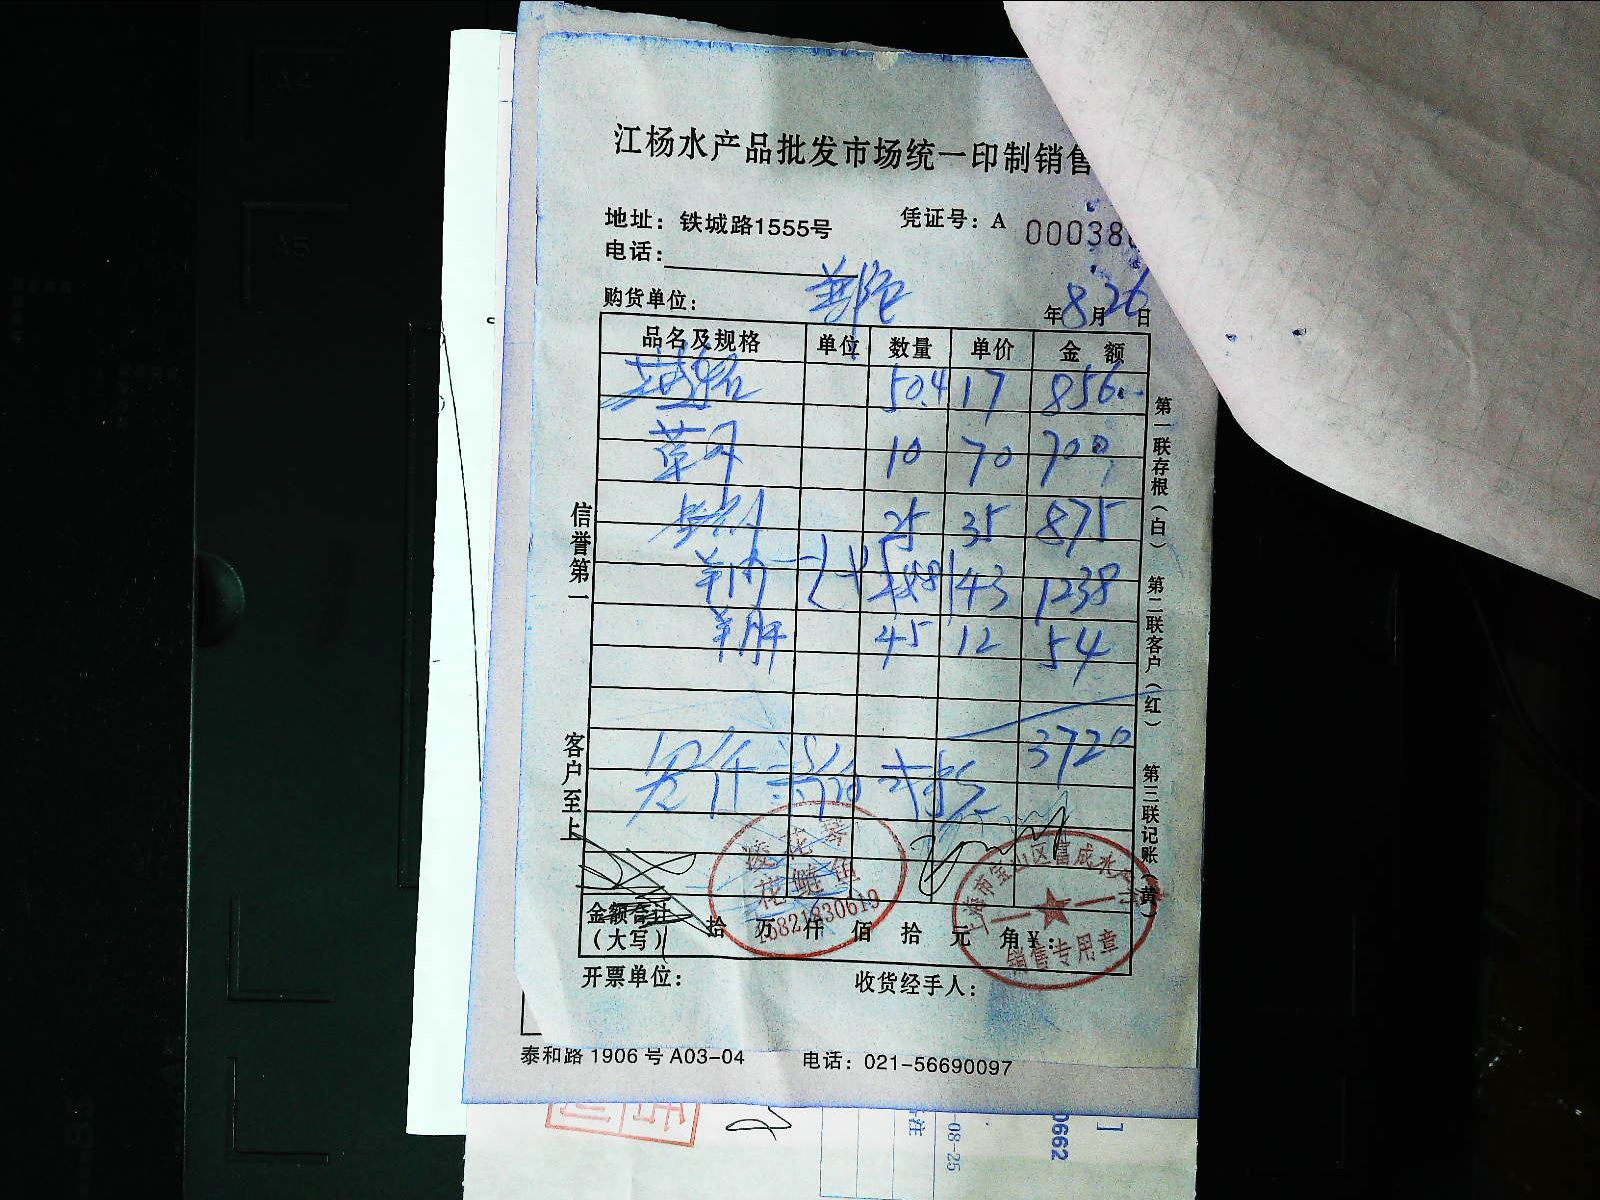 江杨水产品批发市场统一印制销售
地址：铁城路1555号 凭证号：A 00038
电话：
购货单位： 年8月26日
品名及规格 单位 数量 单价 金额
50.4 17 856
草 10 70 700
25 35 875
羊肉 28.8 43 1238
羊肝 45 12 54
3720
叁仟 佰
金额合计
（大写） 拾 万 仟 佰 拾 元 角 ¥：
开票单位： 收货经手人：
信誉第一
客户至上
第一联存根（白） 第二联客户（红） 第三联记账（黄）
凌花琴
花鲢鱼
15821830619
上海市宝山区富成水
销售专用章
泰和路 1906 号 A03-04 电话：021-56690097
-08-25
0662